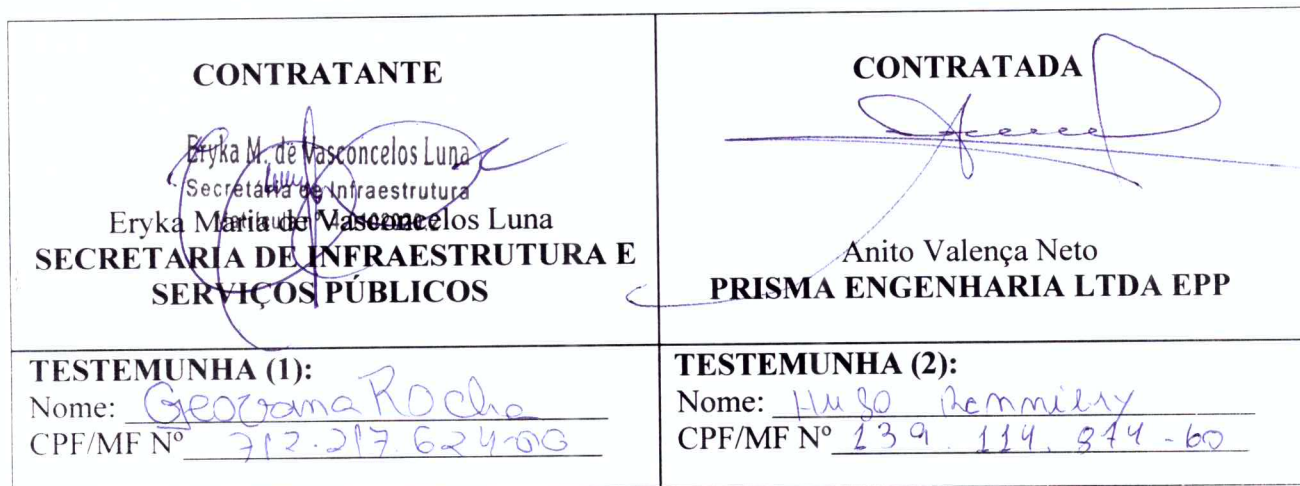 CONTRATANTE
Eryka M. de Vasconcelos Luna
Secretária de Infraestrutura
Eryka Maria de Vasconcelos Luna
SECRETARIA DE INFRAESTRUTURA E
SERVIÇOS PÚBLICOS
CONTRATADA
Anito Valença Neto
PRISMA ENGENHARIA LTDA EPP
TESTEMUNHA (1):
Nome: Geovana Rocha
CPF/MF Nº 712.217.624-00
TESTEMUNHA (2):
Nome: Hugo
CPF/MF Nº 139.114.874-60